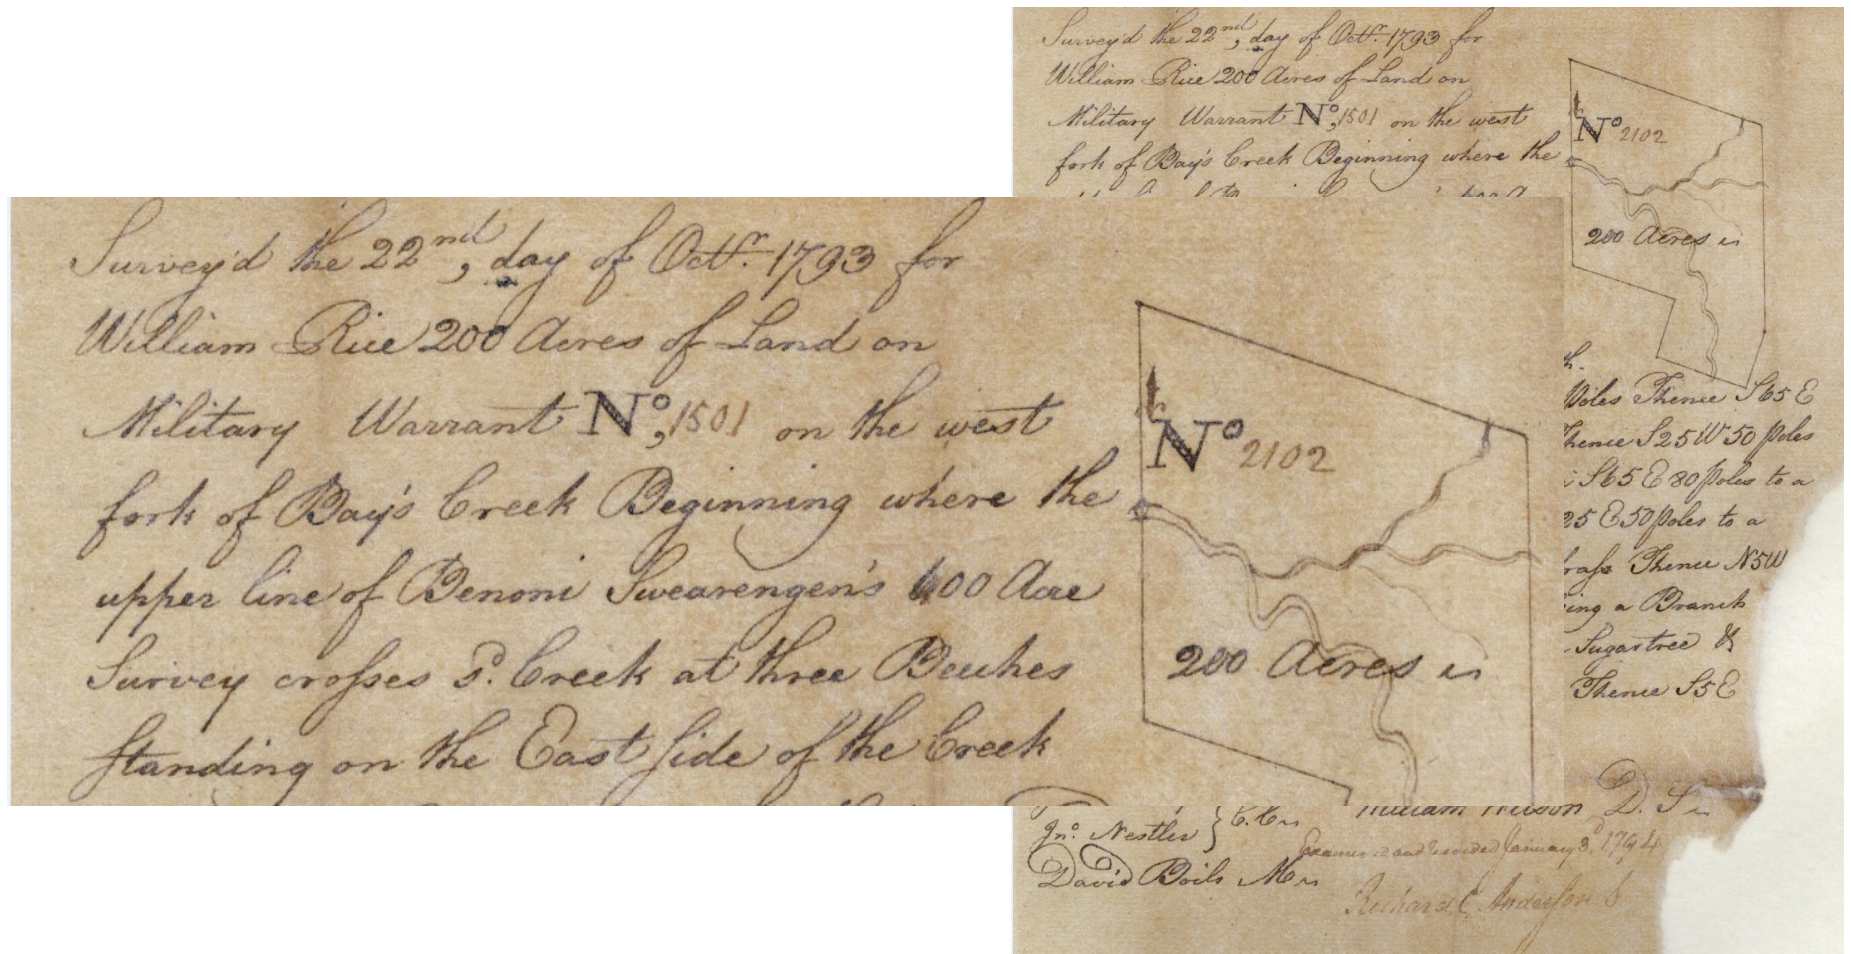 Survey'd the 22nd, day of Octr. 1793 for
William Rice 200 Acres of Land on
Military Warrant No, 1501 on the west
fork of Bay's Creek Beginning where the
upper line of Benoni Swearengen's 400 Acre
Survey crosses sd. Creek at three Beeches
standing on the East side of the Creek
No 2102
200 Acres
Survey'd the 22nd, day of Octr. 1793 for
William Rice 200 Acres of Land on
Military Warrant No, 1501 on the west
fork of Bay's Creek Beginning where the
No 2102
200 Acres
Poles Thence S65E
Thence S25W 50 poles
S65E 80 poles to a
25E 50 poles to a
Thence N5W
ing a Branch
Sugartree &
Thence S5E
William Wilson D. S
Jno. Nestler } C.C
David Boils M
Examined and recorded January 3d, 1794
Richard C, Anderson S